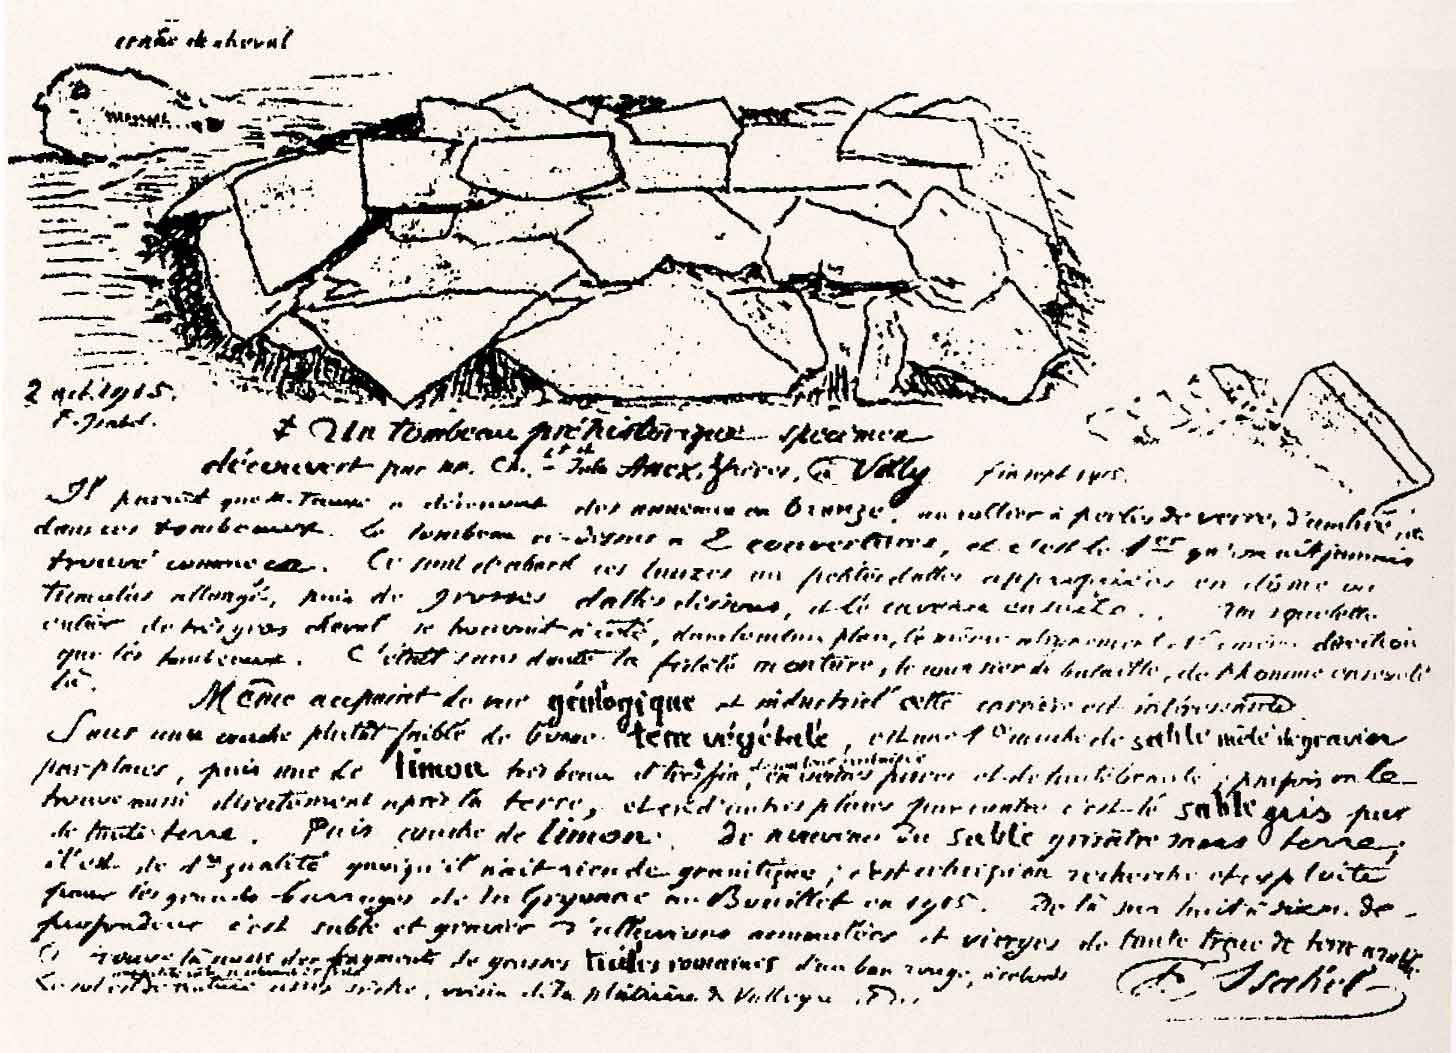 crâne de cheval
2 oct. 1915.
F. Isabel.
Un tombeau préhistorique specimen
découvert par MM. Ch. et Jules Anex, frères, à Volly fin sept 1915.
Il paraît que M. a découvert des anneaux en bronze, un collier à perles de verre, d'ambre etc
dans ces tombeaux. Le tombeau ci-dessus a 2 couvertures, et c'est le 1er qu'on ait jamais
trouvé comme ça. Ce sont d'abord ces lauzes ou petites dalles appropriées en dôme ou
tumulus allongé, puis de grosses dalles dessous, et le caveau ensuite. Un squelette
entier de très gros cheval se trouvait à côté, dans le même plan, le même alignement et même direction
que les tombeaux. C'était sans doute la fidèle monture, le coursier de bataille, de l'homme enseveli
là.
Même au point de vue géologique et industriel cette carrière est intéressante.
Sous une couche plutôt faible de bonne terre végétale, est une 1e couche de sable mêlé de gravier
par places, puis une de limon très beau et très fin, en certaines places et de toute beauté; parfois on le
trouve aussi directement après la terre, et en d'autres places par contre c'est le sable gris pur
de toute terre. Puis couche de limon. De nouveau du sable grisâtre sans terre;
il est de 1re qualité quoiqu'il n'ait rien de granitique; c'est celui qu'on recherche et exploite
pour les grands barrages de la Gryonne au Bouillet en 1915. De là sur huit à dix m. de
profondeur c'est sable et gravier d'alluvions accumulées et vierges de toute trace de terre arable.
On trouve là aussi des fragments de grosses tuiles romaines d'un beau rouge, à rebords
Le sol est de nature assez sèche, voisin de la plâtrière de
F. Isabel